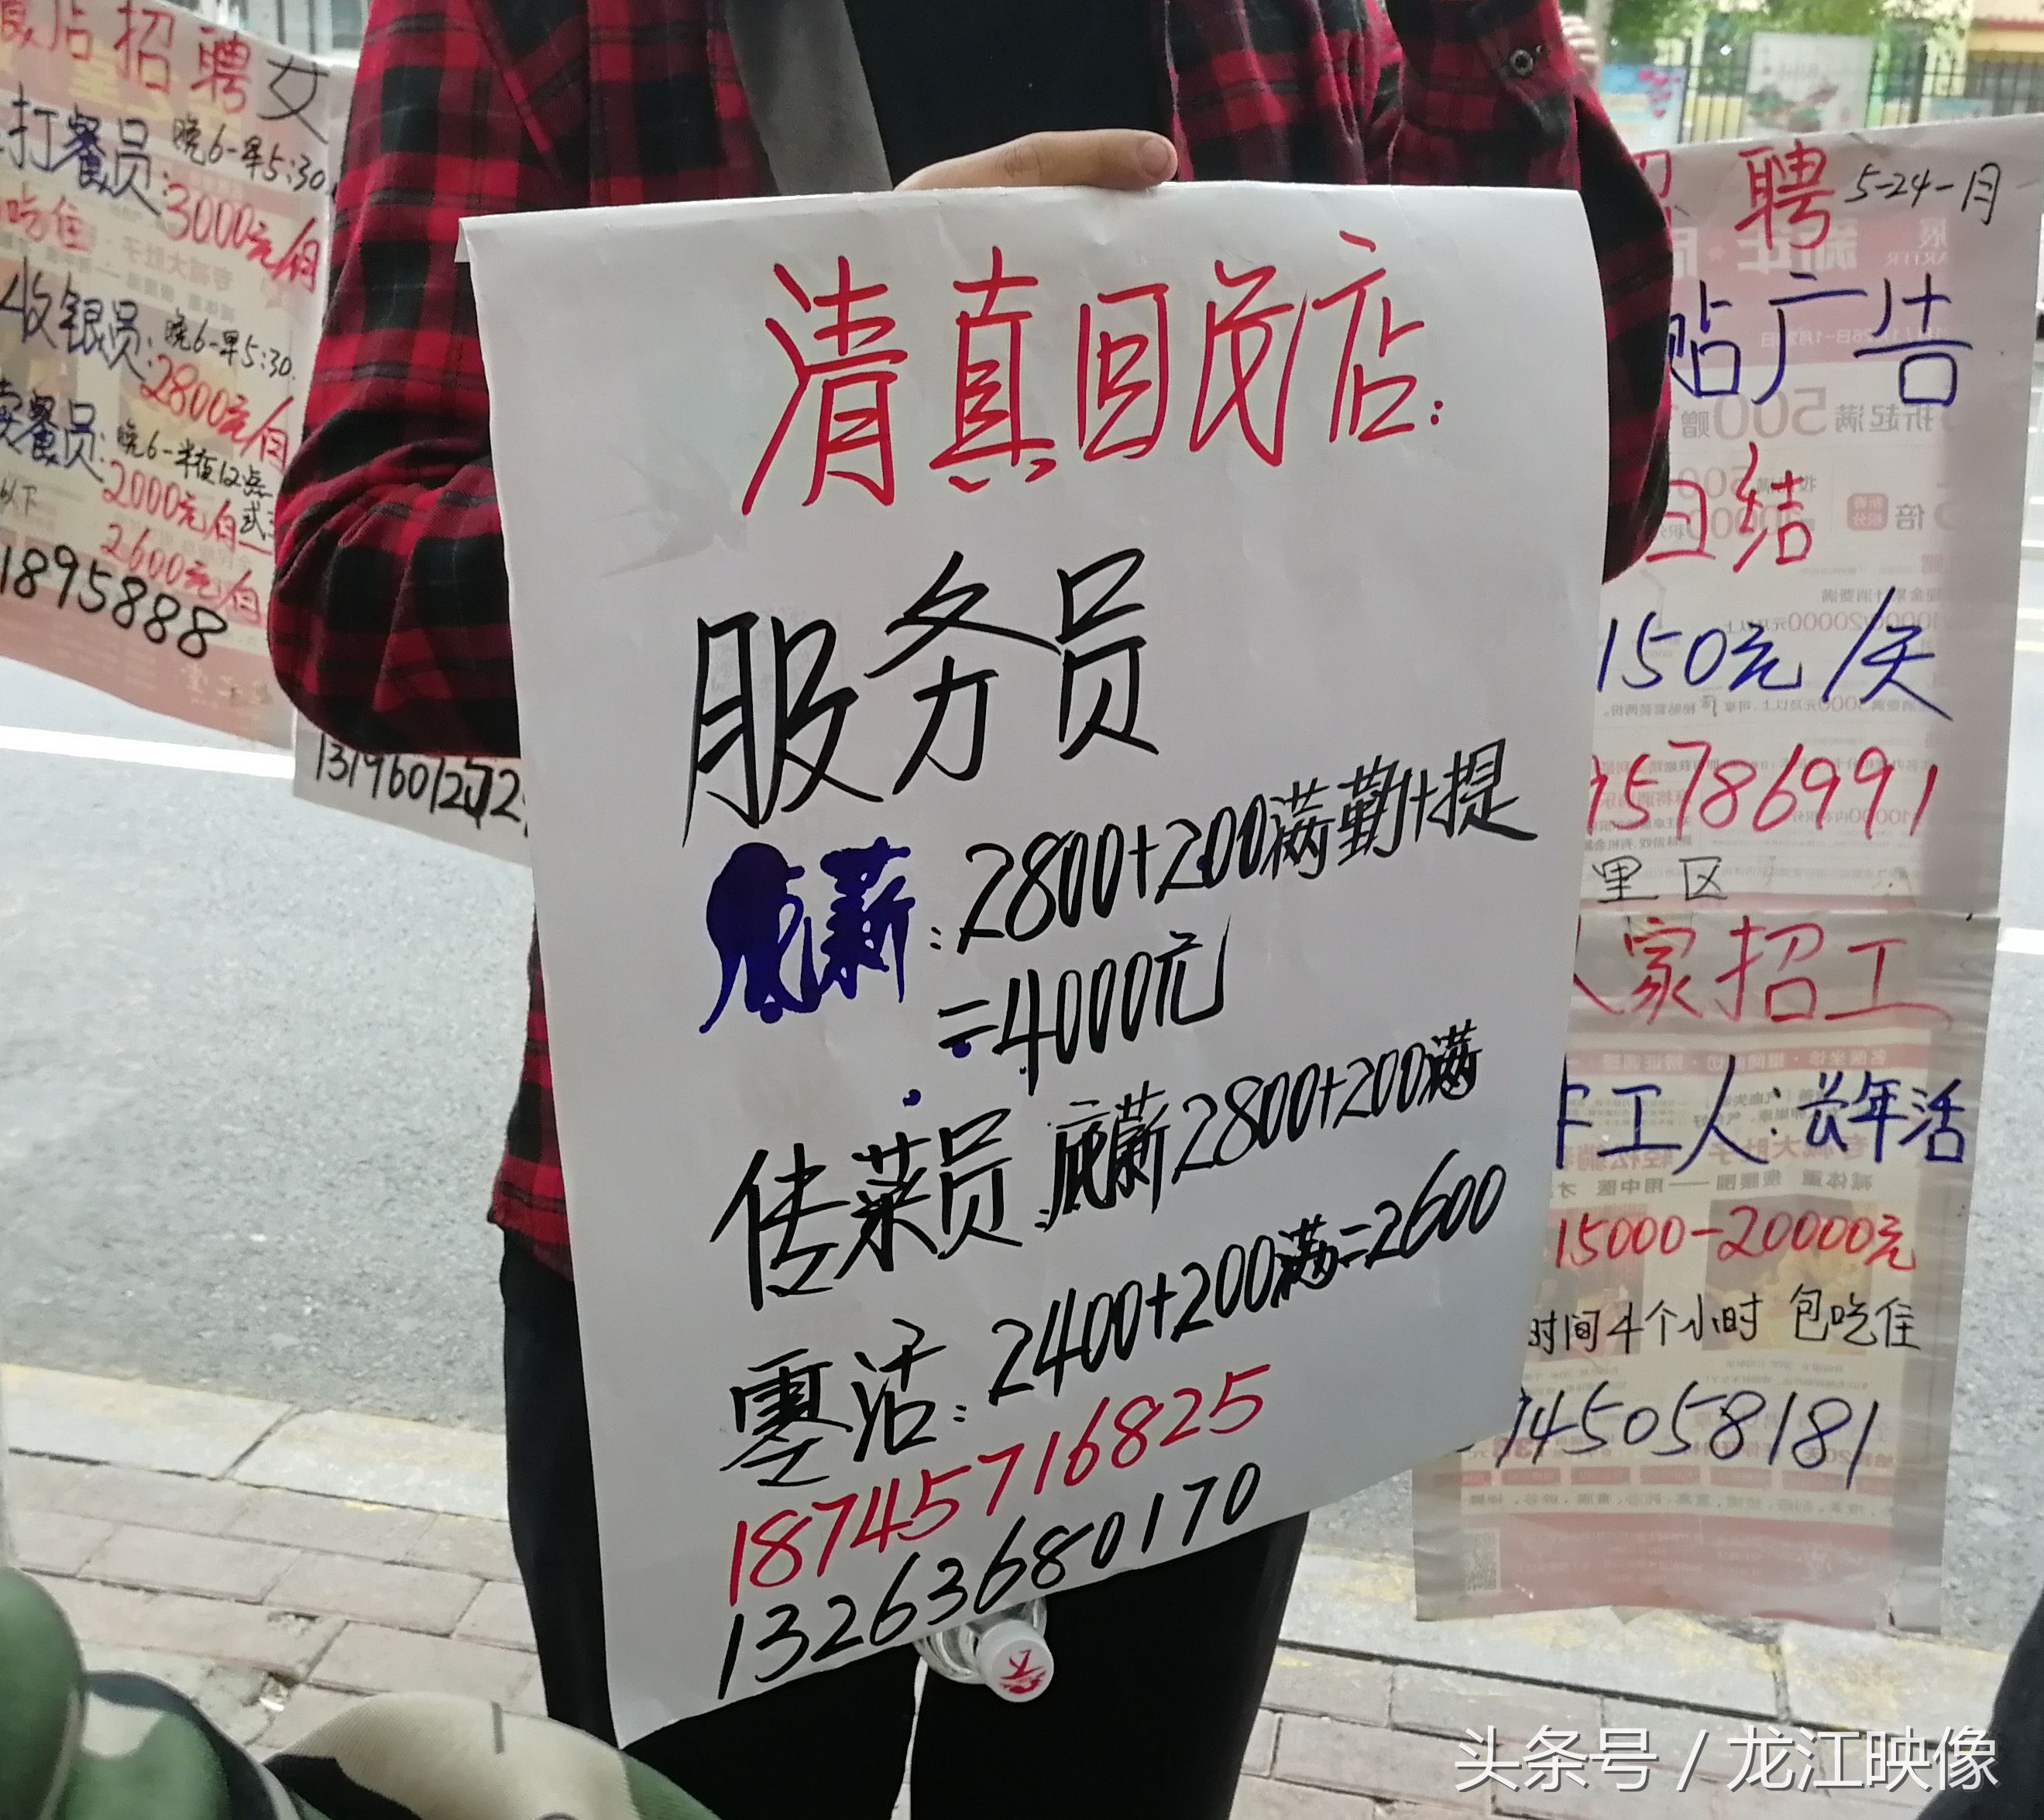 招聘女
打餐员:晚6-早5:30
3000元/月
吃住
收银员:晚6-早5:30.
2800元/月
餐员:晚6-半夜12点
以下 2000元/月
2600元/月
1895888
清真回民店:
服务员
底薪:2800+200满勤+提
=4000元
传菜员:底薪2800+200满
零活:2400+200满=2600
18745716825
13263680170
聘 5-24-月
贴广告
日结
150元/天
95786991
里区
家招工
工人:长年活
15000-20000元
时间4个小时 包吃住
945058181
头条号 / 龙江映像